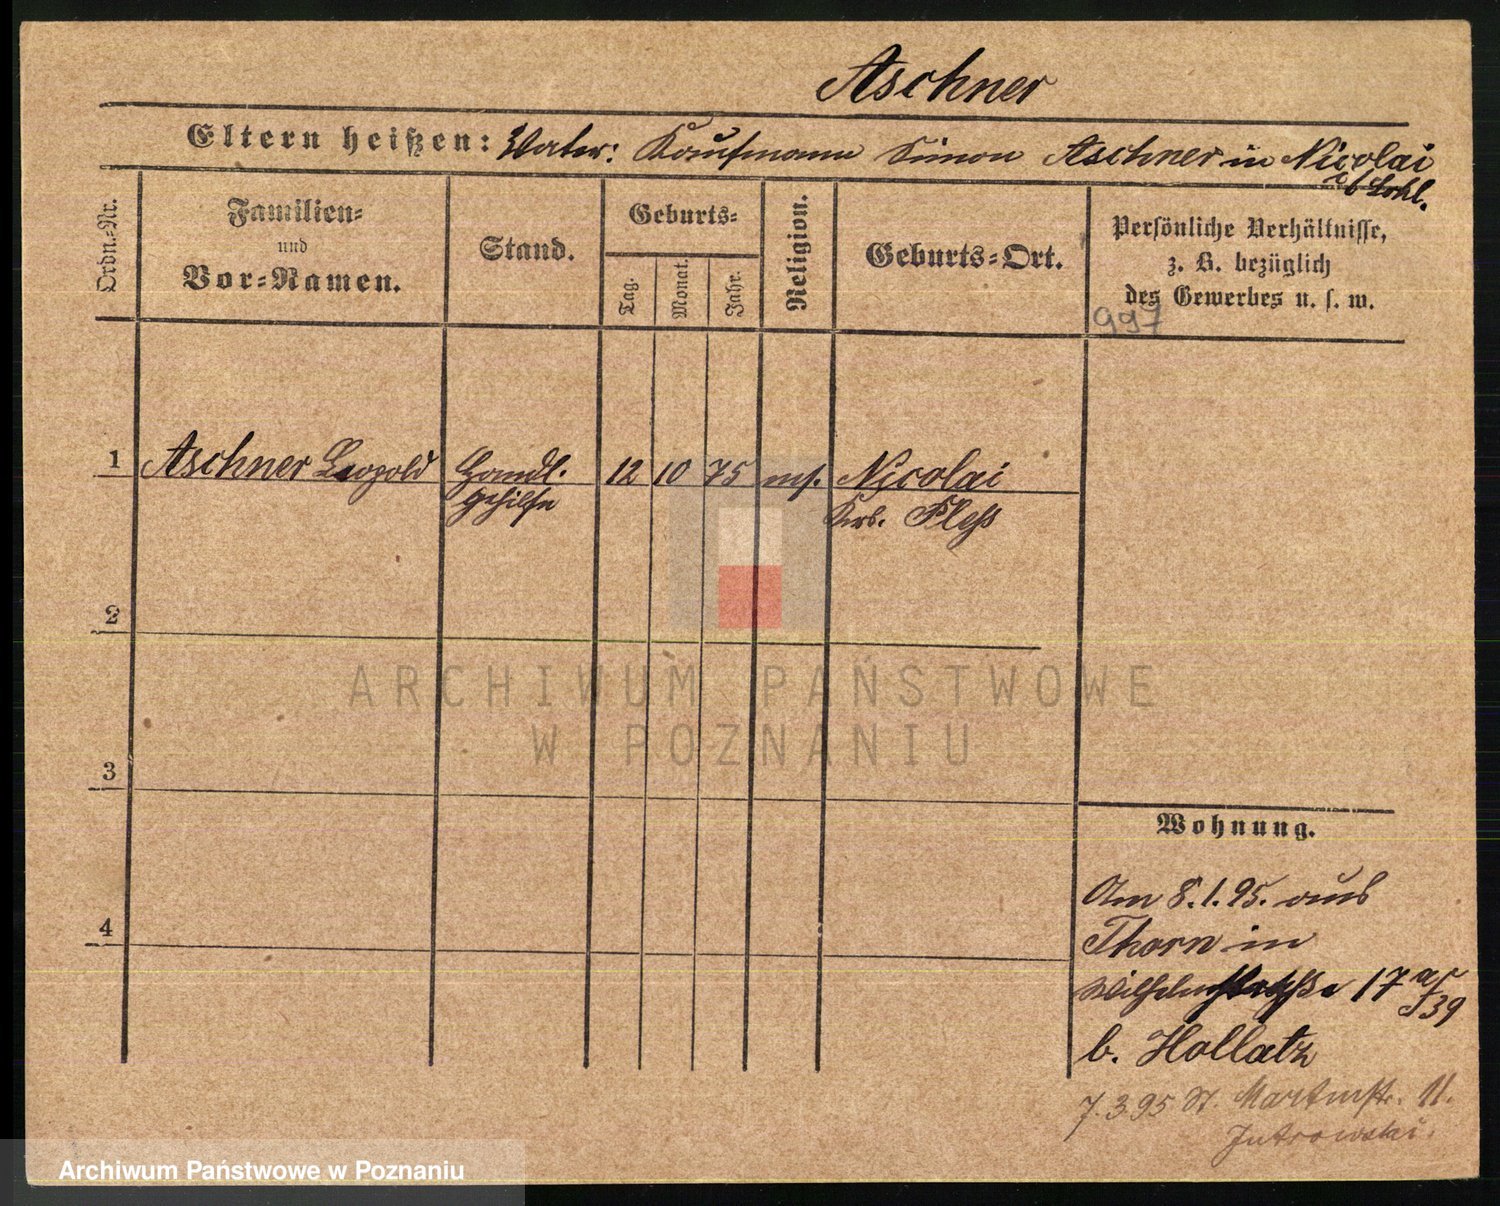 Aschner
Eltern heißen: Vater: Kaufmann Simon Aschner in Nicolai
Ordn.-Nr.
Familien-
und
Vor-Namen.
Stand.
Geburts-
Tag.
Monat.
Jahr.
Religion.
Geburts-Ort.
Persönliche Verhältnisse,
z. B. bezüglich
des Gewerbes u. s. w.
997
1 Aschner Leopold Handl. 12 10 75 ms. Nicolai
gehilfe Krb. Pleß
2
3
4
Wohnung.
Am 8.1.95. aus
Thorn in
Wilhelmstraße 17
b. Hollatz
7.3.95 St. Martinstr. 11.
Jutrowski.
ARCHIWUM PAŃSTWOWE
W POZNANIU
Archiwum Państwowe w Poznaniu